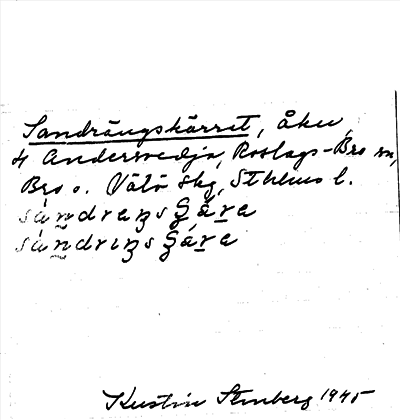 Sandrängskärret, åker,
t Andersvedja, Roslags-Bro sn,
Bro o. Vätö skg, Sthlms l.
sàndreŋsʂár̲e
sàn̰driŋsʂár̲e
Kerstin Stenberg 1945